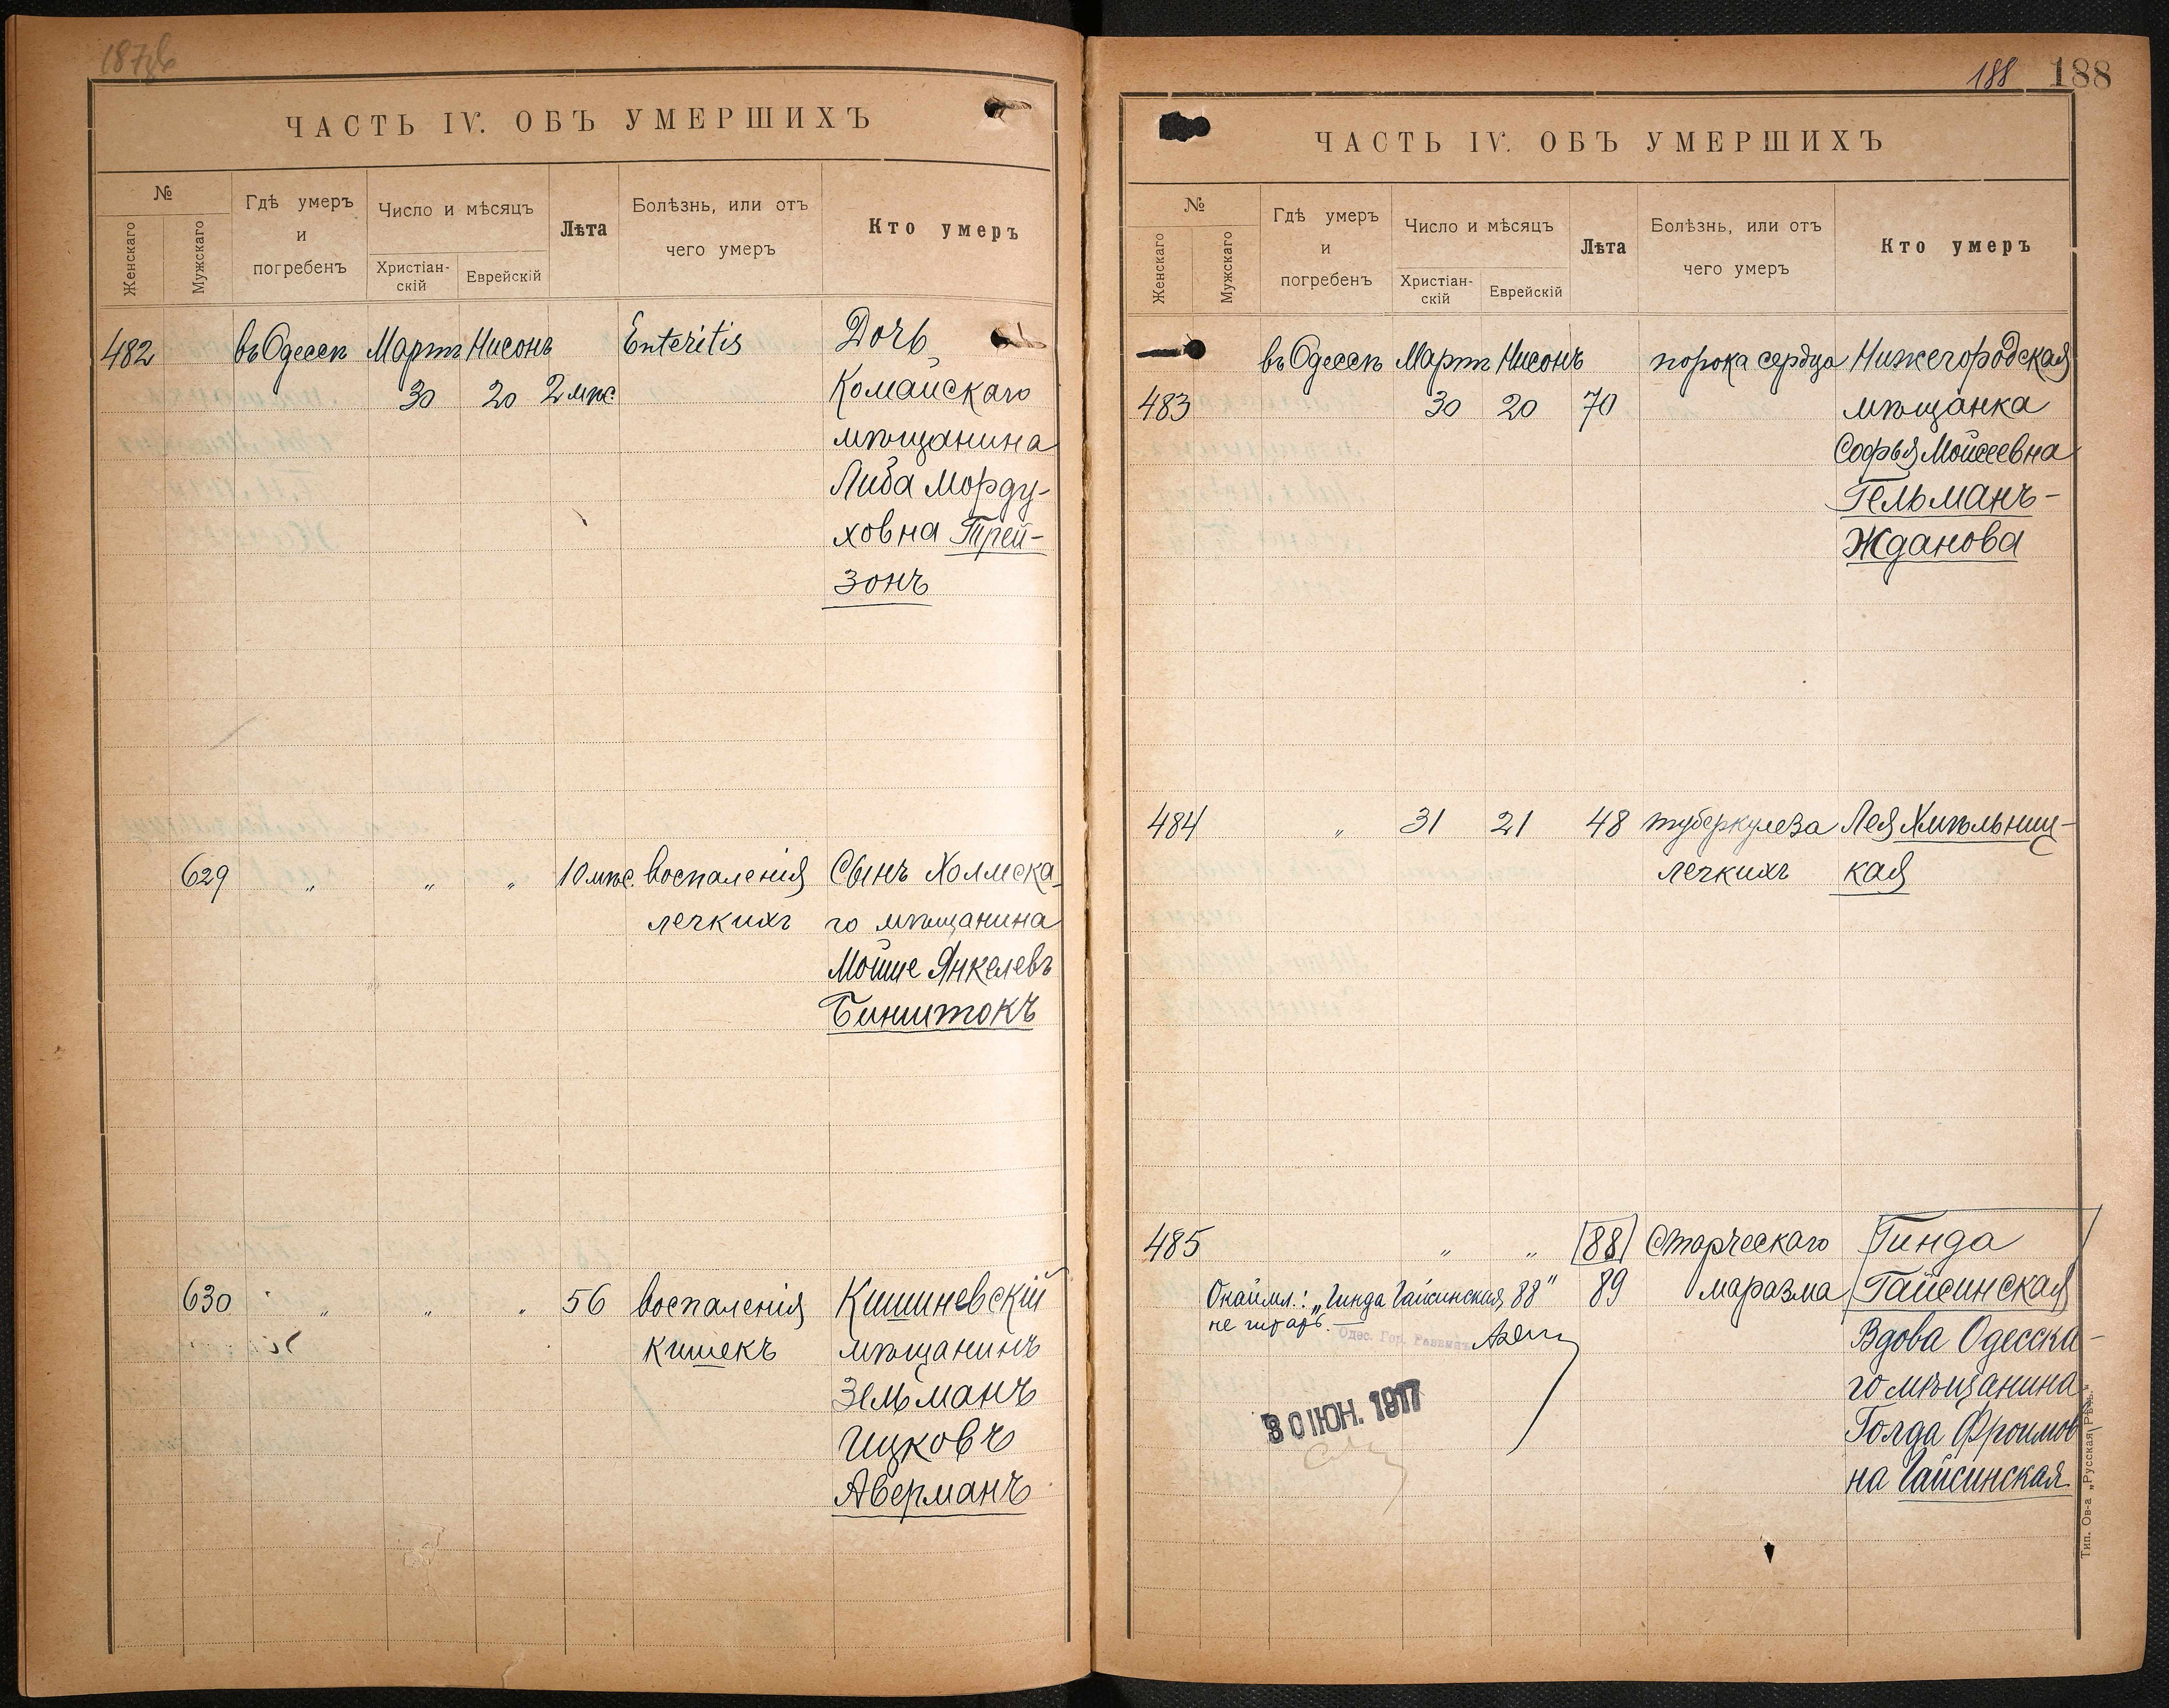 187об
ЧАСТЬ IV. ОБЪ УМЕРШИХЪ
№
Женскаго
Мужскаго
Гдѣ умеръ
и
погребенъ
Число и мѣсяцъ
Христіан-
скій
Еврейскій
Лѣта
Болѣзнь, или отъ
чего умеръ
Кто умеръ
482 въ Одессѣ Мартъ Нисонъ Enteritis Дочь
30 20 2 мѣс. Комайскаго
мѣщанина
Либа Морду-
ховна Трей-
зонъ
629 " " " 10 мѣс. воспаленія Сынъ Холмска-
легкихъ го мѣщанина
Мойше Янкелевъ
Бинштокъ
630 " " " 56 воспаленія Кишиневскій
кишекъ мѣщанинъ
Зельманъ
Ицковъ
Аверманъ
188 188
ЧАСТЬ IV. ОБЪ УМЕРШИХЪ
№
Женскаго
Мужскаго
Гдѣ умеръ
и
погребенъ
Число и мѣсяцъ
Христіан-
скій
Еврейскій
Лѣта
Болѣзнь, или отъ
чего умеръ
Кто умеръ
въ Одессѣ Мартъ Нисонъ порока сердца Нижегородская
483 30 20 70 мѣщанка
Софья Мойсеевна
Гельманъ-
Жданова
484 " 31 21 48 туберкулеза Лея Хмѣльниц-
легкихъ кая
485 " " 88 Старческаго Гинда
Окаймл.: „Гинда Гайсинская 88" 89 маразма Гайсинская
не читать. Вдова Одесска-
Одес. Гор. Раввинъ
го мѣщанина
30 ІЮН. 1917
Голда Фроимов
на Гайсинская
Тип. Ов-а „Русская Рѣчь."